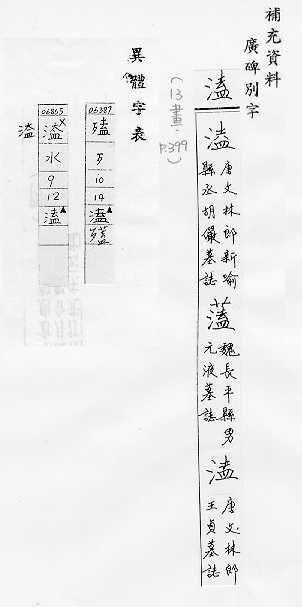 補充資料
廣碑別字
溘
溘
唐文林郎新喻
縣丞胡儼墓誌
魏長平縣男
元液墓誌
溘
唐文林郎
王貞墓誌
(13畫·
P.399)
異體字表
06387
歹
10
14
溘
06865
水
9
12
溘
溘